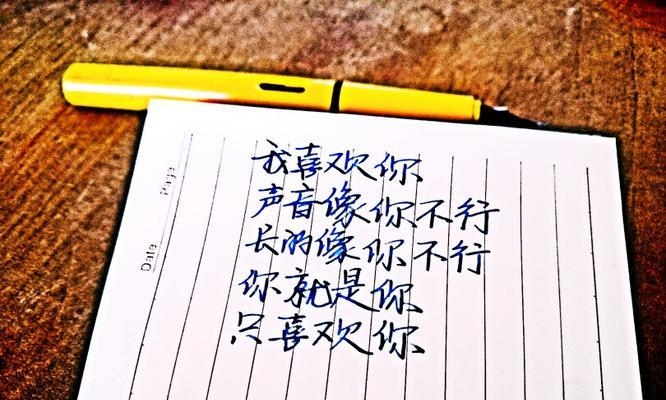 我喜欢你
声音像你不行
长的像你不行
你就是你
只喜欢你
Page
Date